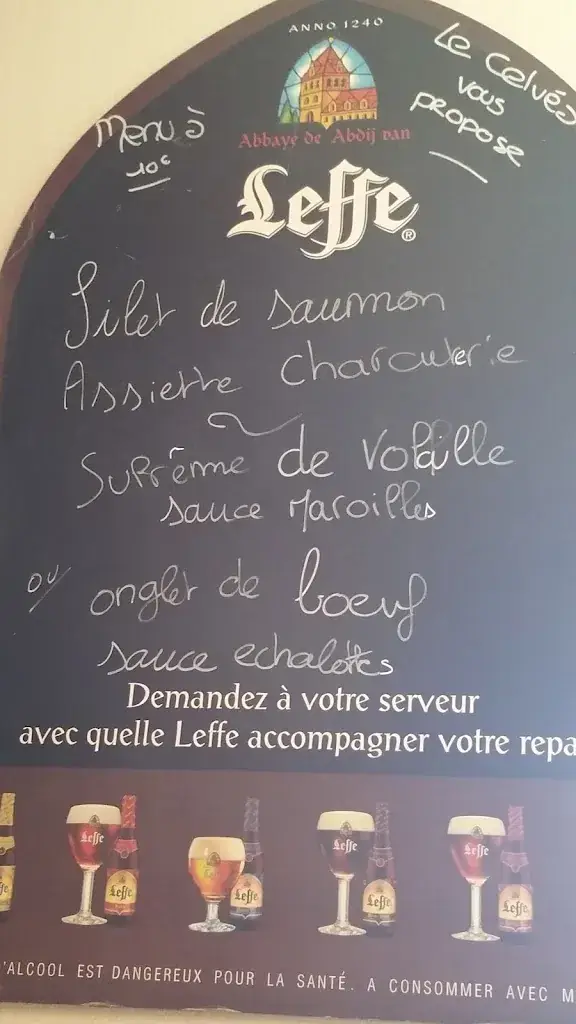 ANNO 1240
Le Celvés
vous
propose
Menu à
10€
Abbaye de Abdij van
Leffe®
Filet de saumon
Assiette charcuterie
Suprême de volaille
sauce Maroilles
ou onglet de boeuf
sauce echalottes
Demandez à votre serveur
avec quelle Leffe accompagner votre repa
Leffe Leffe Leffe Leffe Leffe Leffe Leffe Leffe
'ALCOOL EST DANGEREUX POUR LA SANTÉ. A CONSOMMER AVEC M